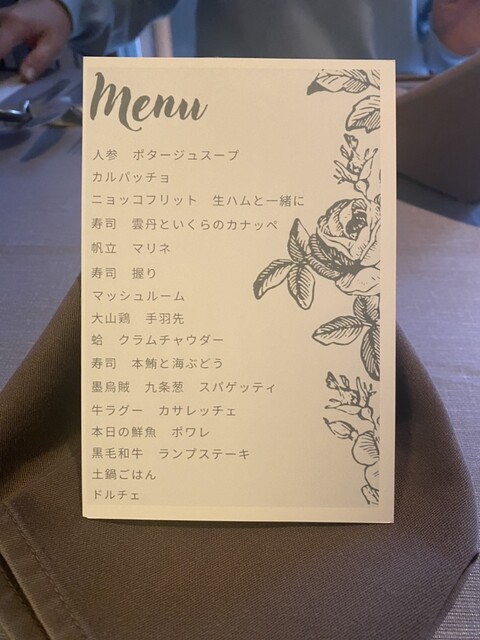 Menu
人参　ポタージュスープ
カルパッチョ
ニョッコフリット　生ハムと一緒に
寿司　雲丹といくらのカナッペ
帆立　マリネ
寿司　握り
マッシュルーム
大山鶏　手羽先
蛤　クラムチャウダー
寿司　本鮪と海ぶどう
墨烏賊　九条葱　スパゲッティ
牛ラグー　カサレッチェ
本日の鮮魚　ポワレ
黒毛和牛　ランプステーキ
土鍋ごはん
ドルチェ